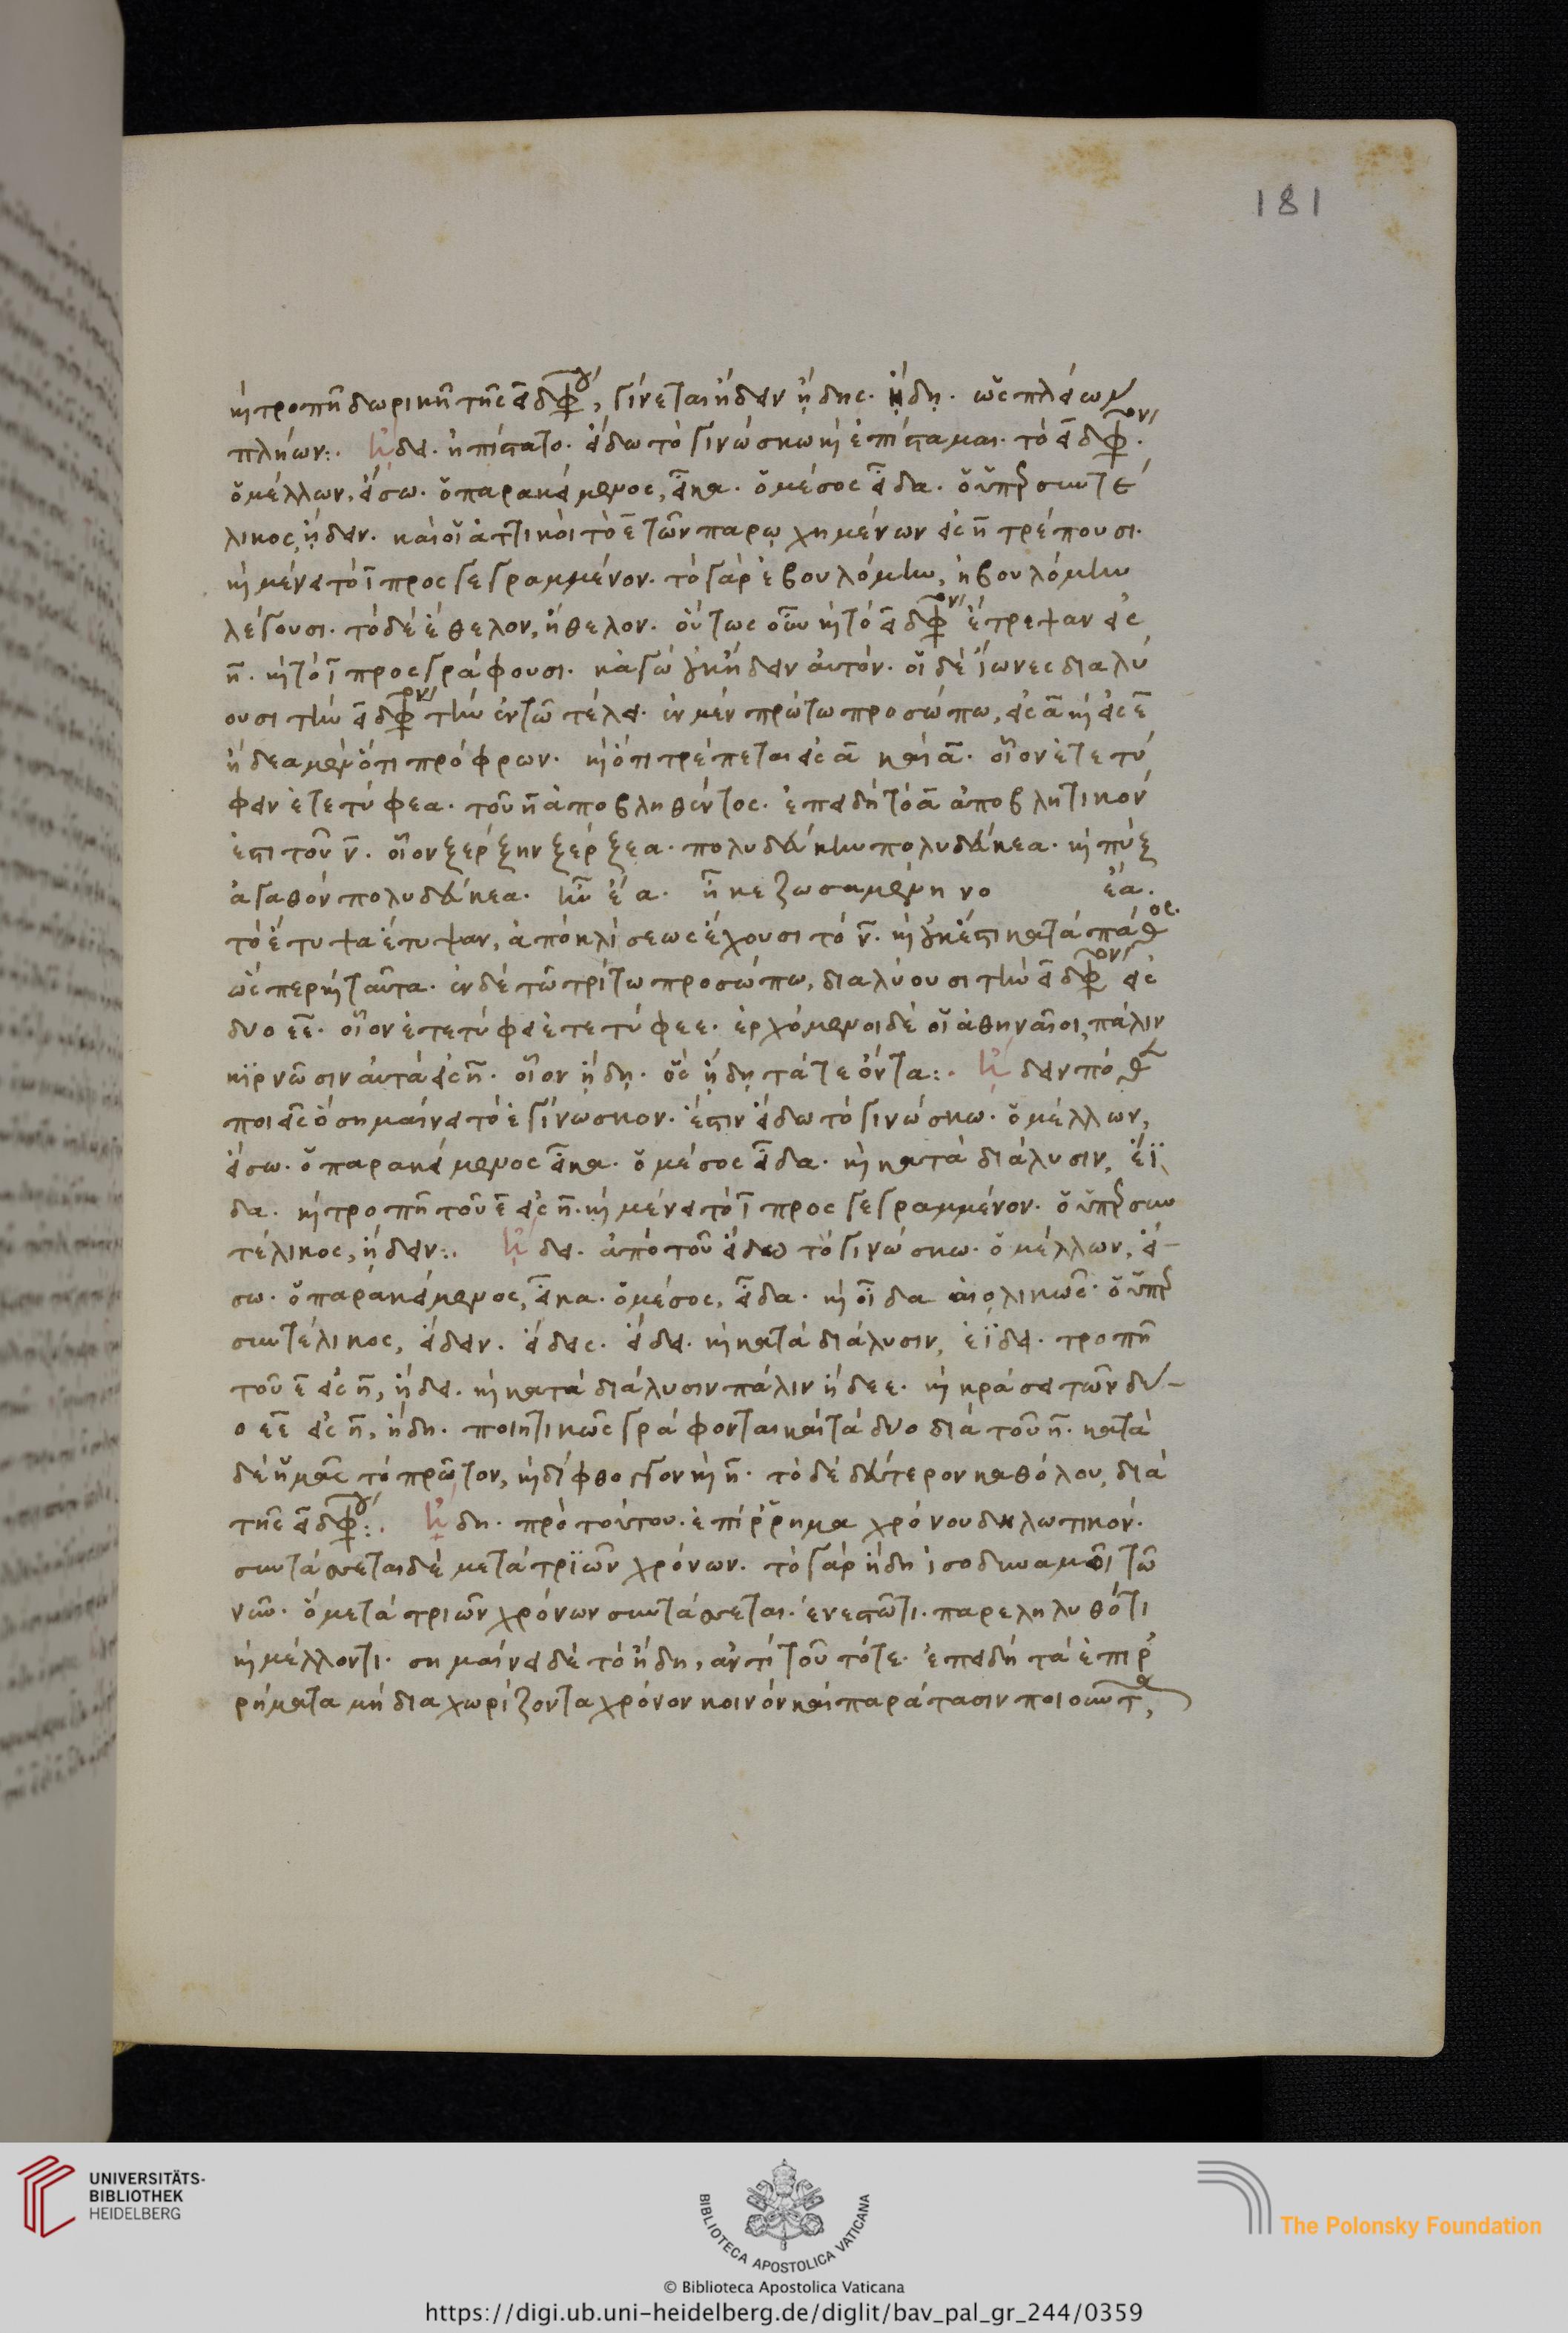 181
κ τροπῆ δωρικῆ τῆς ει διφ, γίνεται ᾔδειν ᾔδης. ᾔδη. ὡς πλείων
πλήων:. ᾔδει. ἠπίστατο. εἴδω τὸ γινώσκω κ ἐπίσταμαι. τὸ ει διφ.
ὁ μέλλων, εἴσω. ὁ παρακείμενος, εἶκα. ὁ μέσος εἶδα. ὁ ὑπερσυντέ
λικος, ᾔδειν. καὶ οἱ ἀττικοὶ τὸ ε τῶν παρῳχημένων εἰς η τρέπουσι.
κ μένει τὸ ι προσγεγραμμένον. τὸ γὰρ ἐβουλόμην, ἠβουλόμην
λέγουσι. τὸ δὲ ἔθελον, ἤθελον. οὕτως οὖν κ τὸ ει διφ ἔτρεψαν εἰς
η. κ τὸ ι προσγράφουσι. κἀγὼ οὐκ ᾔδειν αὐτόν. οἱ δὲ ἴωνες διαλύ
ουσι τὴν ει διφ τὴν ἐν τῶ τέλει. ἐν μὲν πρώτω προσώπω, εἰς α κ εἰς ε
ᾔδεα μὲν ὅτι πρόφρων. κ ὅτι τρέπεται εἰς α καὶ α. οἷον ἐτετύ
φειν ἐτετύφεα. τοῦ η ἀποβληθέντος. ἐπειδὴ τὸ α ἀποβλητικόν
ἐστι τοῦ ν. οἷον ξέρξην ξέρξεα. πολυδεύκην πολυδεύκεα. κ πὺξ
ἀγαθὸν πολυδεύκεα. ἦν ἔα. ἦκε ζωσαμένη νο ἔα.
τὸ ἔτυψα ἔτυψαν, ἀποκλίσεως ἔχουσι τὸ ν. κ οὐκ ἔστι κατὰ πάθος.
ὥσπερ κ ταῦτα. ἐν δὲ τῶ τρίτω προσώπω, διαλύουσι τὴν ει διφ εἰς
δυο εε. οἷον ἐτετύφει ἐτετύφεε. ἐρχόμενοι δὲ οἱ ἀθηναῖοι, πάλιν
κιρνῶσιν αὐτὰ εἰς η. οἷον ᾔδη. ὃς ᾔδη τά τε ὄντα:. ᾔδειν πόθεν
ποιεῖς ὃ σημαίνει τὸ ἐγίνωσκον. ἔστιν εἴδω τὸ γινώσκω. ὁ μέλλων,
εἴσω. ὁ παρακείμενος εἶκα. ὁ μέσος εἶδα. κ κατὰ διάλυσιν, ἔϊ
δα. κ τροπῆ τοῦ ε εἰς η. κ μένει τὸ ι προσγεγραμμένον. ὁ ὑπερσυν
τέλικος, ᾔδειν:. ᾔδει. ἀπὸ τοῦ εἴδω τὸ γινώσκω. ὁ μέλλων, εἴ-
σω. ὁ παρακείμενος, εἶκα. ὁ μέσος, εἶδα. κ οἶδα αἰολικῶς. ὁ ὑπερ
συντέλικος, εἴδειν. εἴδεις. εἴδει. κ κατὰ διάλυσιν, ἐΐδει. τροπῆ
τοῦ ε εἰς η, ᾔδει. κ κατὰ διάλυσιν πάλιν ᾔδεε. κ κράσει τῶν δύ-
ο εε εἰς η, ᾔδη. ποιητικῶς γράφονται καὶ τὰ δυο διὰ τοῦ η. κατὰ
δὲ ἡμᾶς τὸ πρῶτον, κ δίφθογγον κ η. τὸ δὲ δεύτερον καθόλου, διὰ
τῆς ει διφ:. ἤδη. πρὸ τούτου. ἐπίρρημα χρόνου δηλωτικόν.
συντάσσεται δὲ μετὰ τριῶν χρόνων. τὸ γὰρ ἤδη ἰσοδυναμεῖ τῶ
νῦν. ὃ μετὰ τριῶν χρόνων συντάσσεται. ἐνεστῶτι. παρεληλυθότι
κ μέλλοντι. σημαίνει δὲ τὸ ἤδη, ἀντὶ τοῦ τότε. ἐπειδὴ τὰ ἐπιρ
ρήματα μὴ διαχωρίζοντα χρόνον κοινὸν καὶ παράτασιν ποιοῦνται,
UNIVERSITÄTS-
BIBLIOTHEK
HEIDELBERG
BIBLIOTECA APOSTOLICA VATICANA
The Polonsky Foundation
© Biblioteca Apostolica Vaticana
https://digi.ub.uni-heidelberg.de/diglit/bav_pal_gr_244/0359